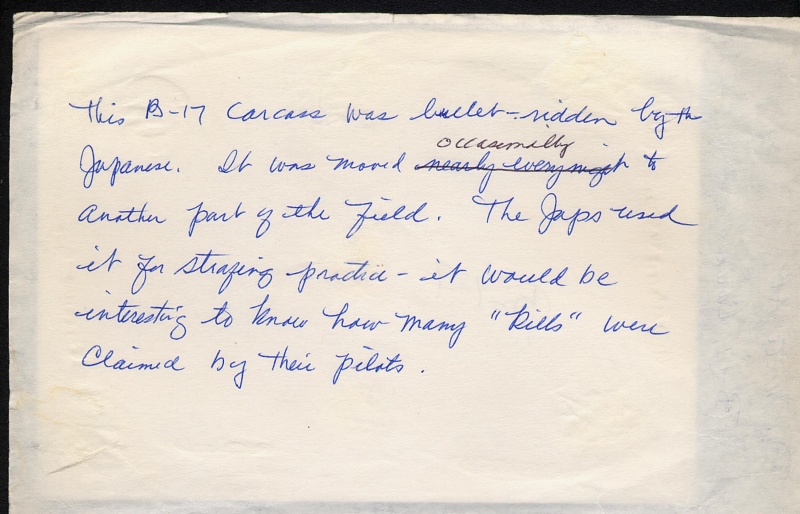 This B-17 carcass was bullet-ridden by th
Japanese. It was moved nearly every night to
occasionally
another part of the field. The Japs used
it for strafing practice - it would be
interesting to know how many "kills" were
claimed by their pilots.